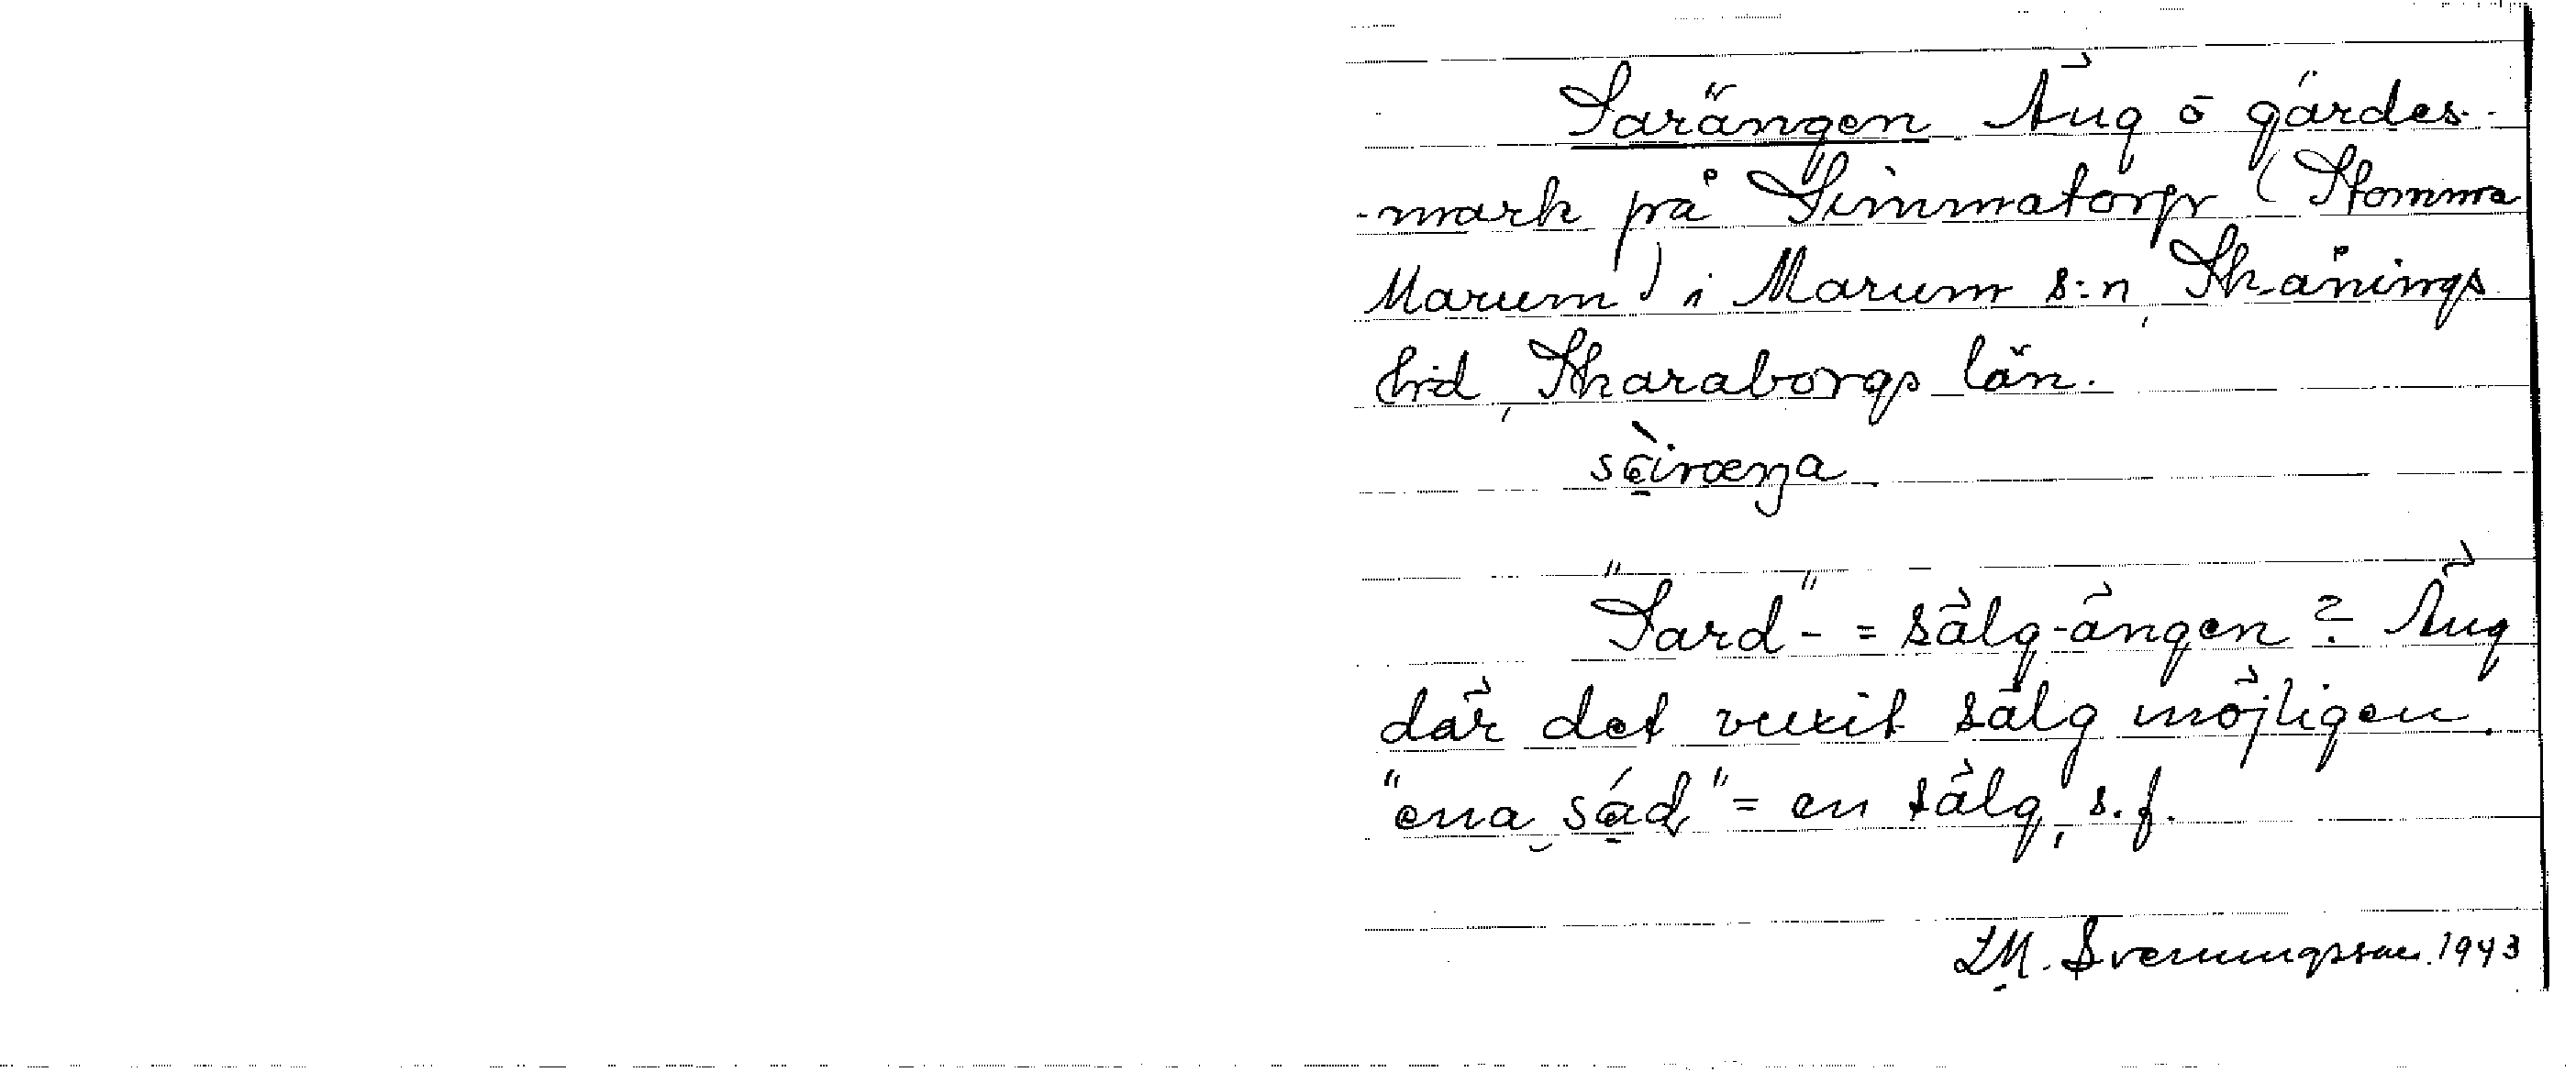 Sarängen Äng o gärdes-
-mark på Simmatorp (Stomma
Marum) i Marum s:n, Skånings
hrd, Skaraborgs län.

"Sard"- = sälg-ängen? Äng
där det vuxit sälg möjligen.
"ena sad" = en sälg, s.f.
LM. Svenungsson. 1943